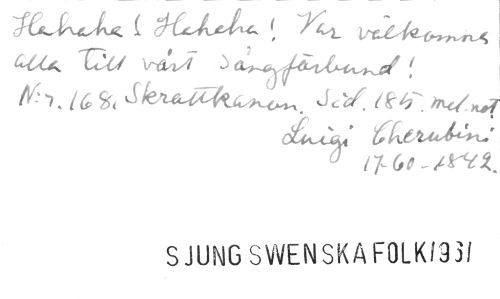 Hahaha! Hahaha! Var välkomna
alla till vårt sångförbund!
N:r. 168. Skrattkanon. Sid. 185. mel. not
Luigi Cherubini
1760-1842.
SJUNG SWENSKA FOLK/1931